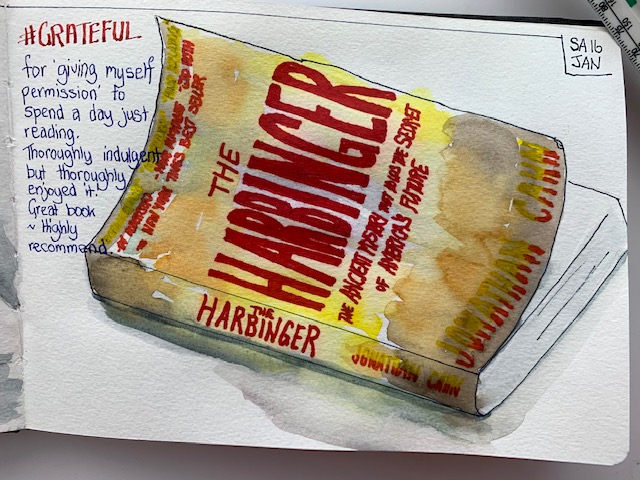 #GRATEFUL
for 'giving myself
permission' to
spend a day just
reading.
Thoroughly indulgent
but thoroughly
enjoyed it.
Great book
~ Highly
recommend.
SA 16
JAN
NEW YORK TIMES BEST SELLER
THE
HARBINGER
THE ANCIENT MYSTERY THAT HOLDS THE SECRET
OF AMERICA'S FUTURE
JONATHAN CAHN
THE
HARBINGER
JONATHAN CAHN